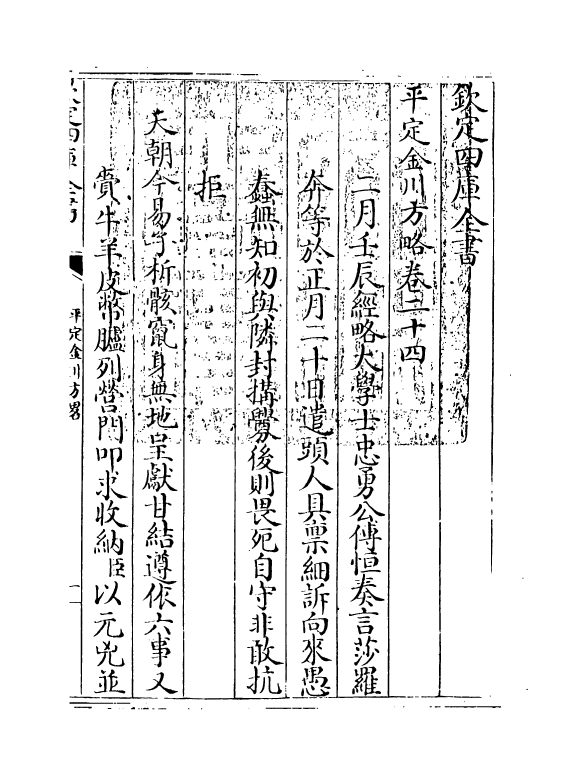 欽定四庫全書
平定金川方略卷二十四
二月壬辰經略大學士忠勇公傅恒奏言莎羅
奔等於正月二十日遣頭人具稟細訴向來愚
蠢無知初與隣封搆釁後則畏死自守非敢抗
拒
天朝今易子析骸竄身無地呈獻甘結遵依六事又
賫牛羊皮幣臚列營門叩求收納臣以元兇並
欽定四庫全書
平定金川方畧
一